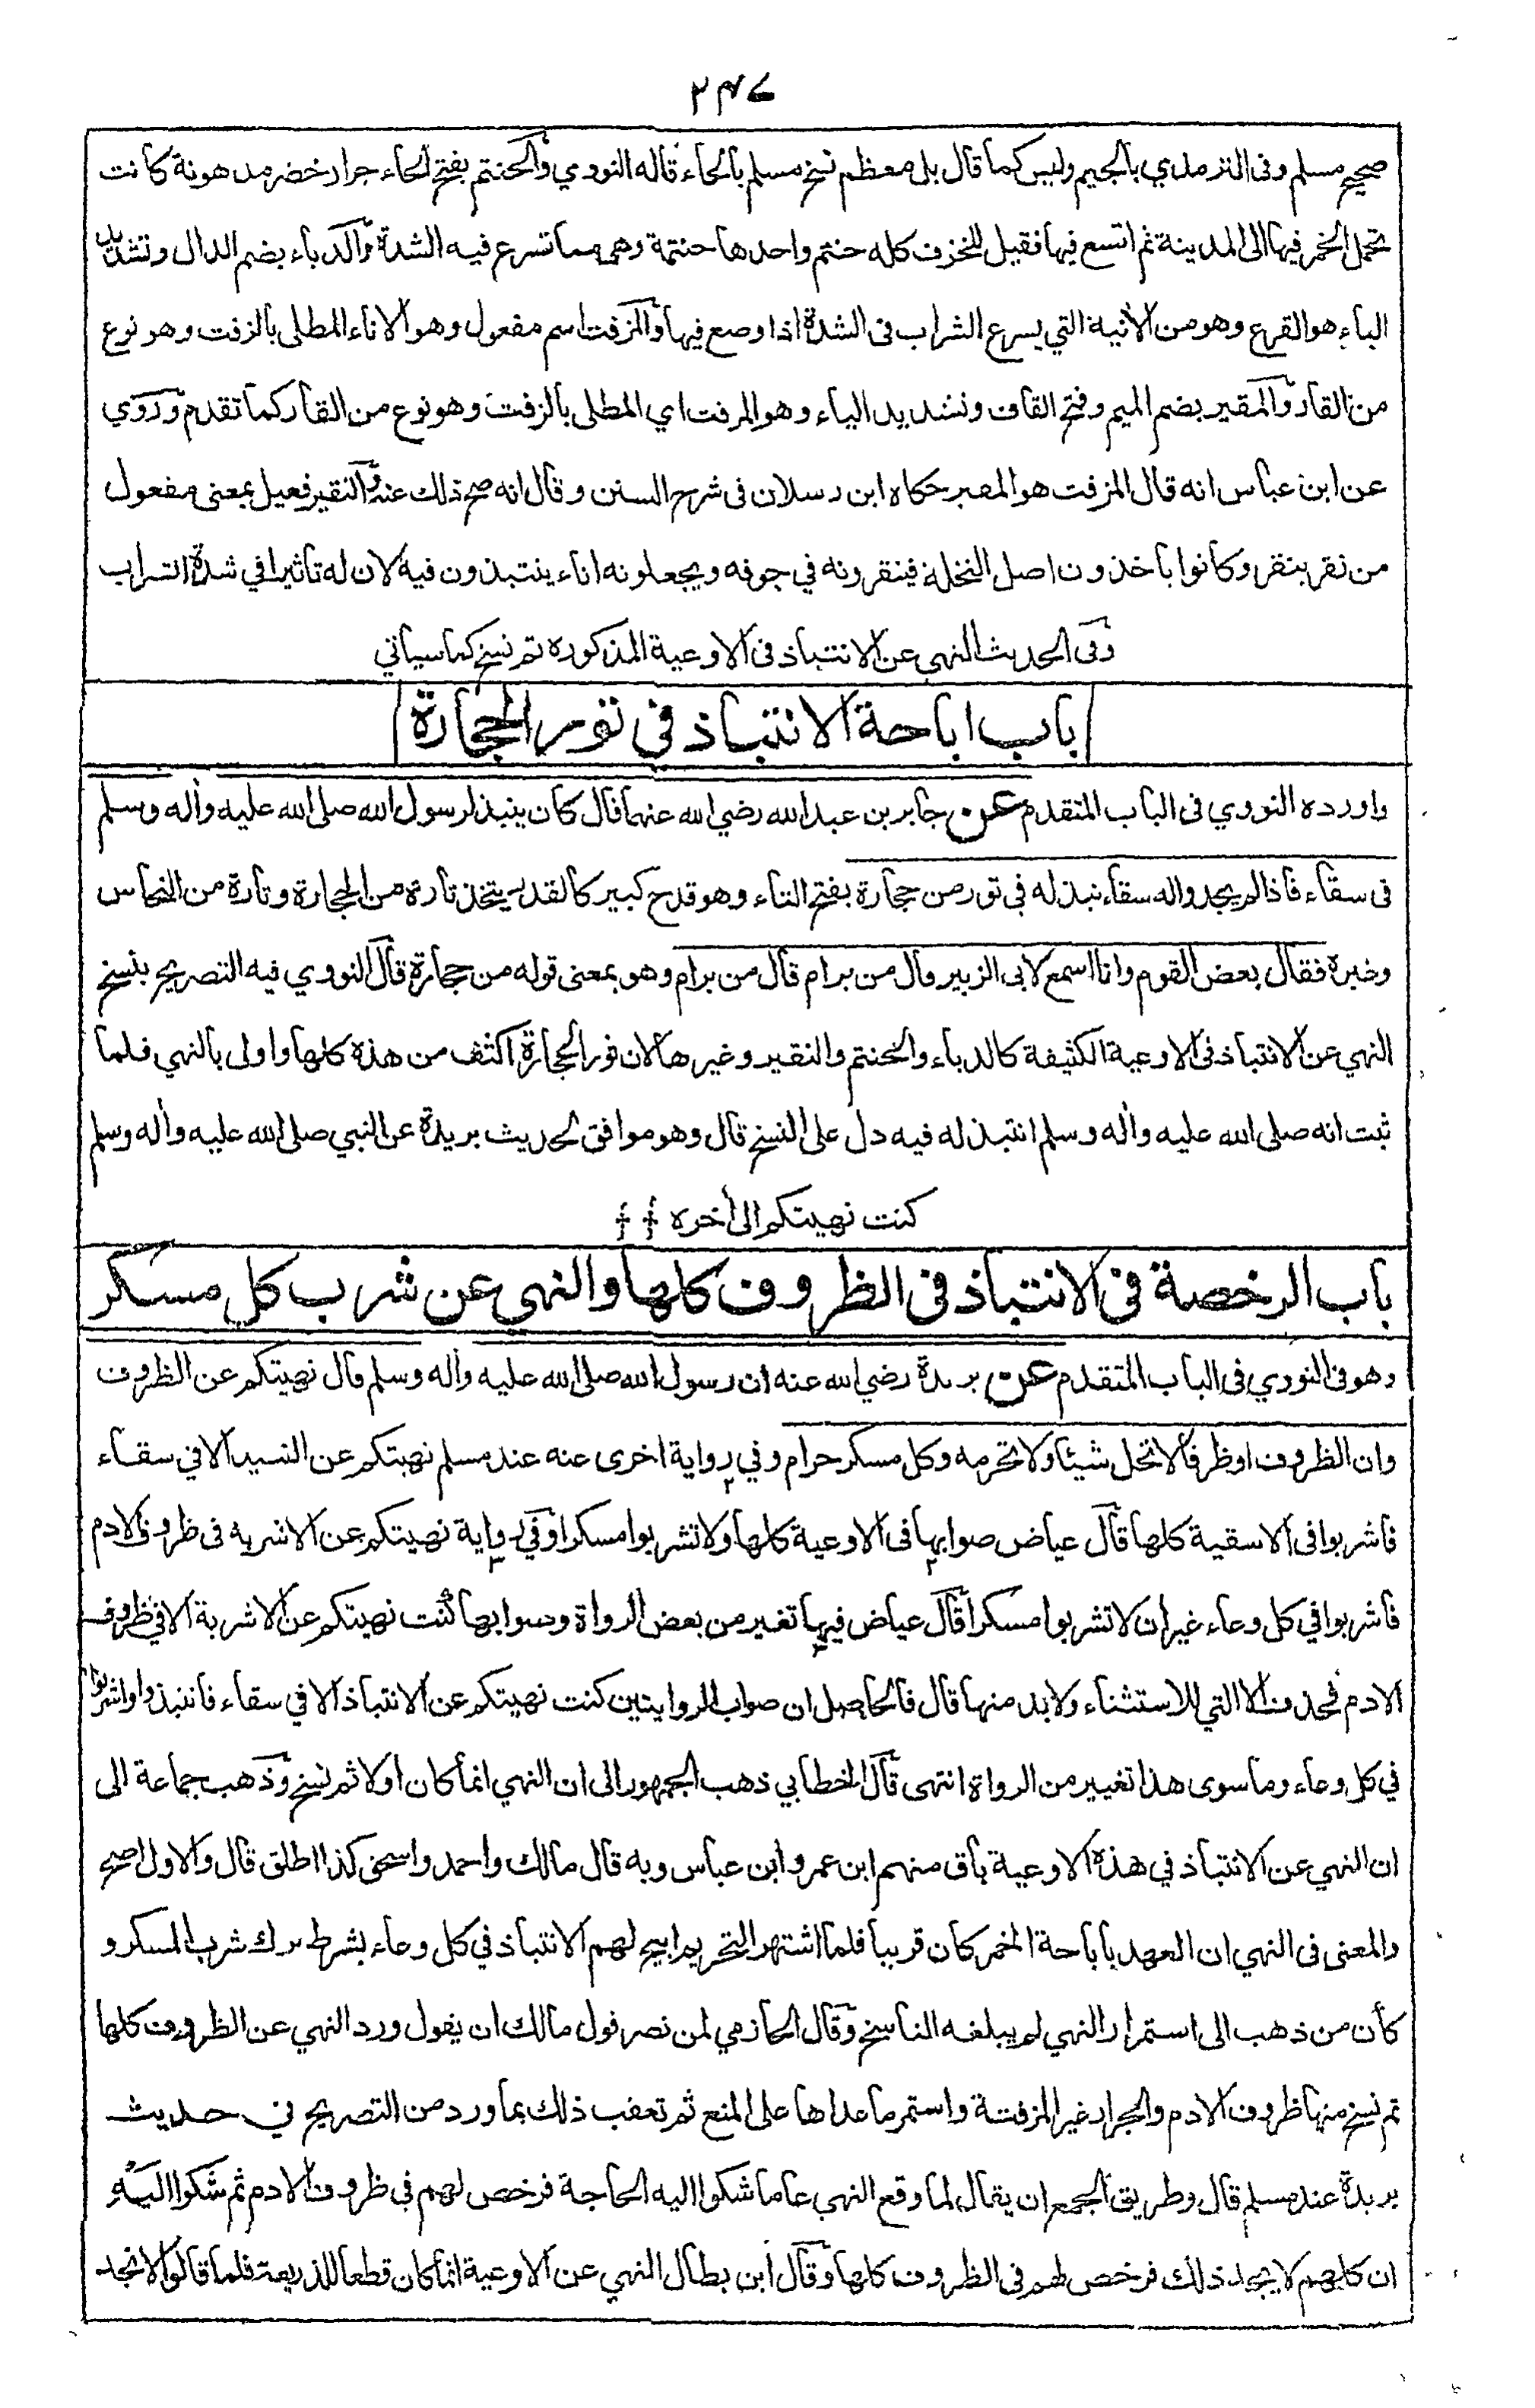 ٢٣٧
صحيح مسلم وفى الترمذي بالجيم وليس كما قال بل معظم نسخ مسلم بالحاء قاله النووي والحنتم بفتح الحاء جرار خضر مدهونة كانت
تحمل الخمر فيها الى المدينة ثم اتسع فيها فقيل للخزف كله حنتم واحدها حنتمة وهى مما تسرع فيه الشدة والدباء بضم الدال وتشديد
الباء هو القرع وهو من الآنية التي يسرع الشراب فى الشدة اذا وضع فيها والمزفت اسم مفعول وهو الاناء المطلى بالزفت وهو نوع
من القار والمقير بضم الميم وفتح القاف وتشديد الياء وهو المزفت اي المطلى بالزفت وهو نوع من القار كما تقدم وروي
عن ابن عباس انه قال المزفت هو المقير حكاه ابن رسلان فى شرح السنن وقال انه صح ذلك عنه والنقير فعيل بمعنى مفعول
من نقر ينقر وكانوا يأخذون اصل النخلة فينقرونه في جوفه ويجعلونه اناء ينتبذون فيه لان له تاثيرا في شدة الشراب
وفى الحديث النهي عن الانتباذ فى الاوعية المذكورة ثم نسخ كما سياتي
باب اباحة الانتباذ في تور الحجارة
واورده النووي فى الباب المتقدم عن جابر بن عبد الله رضي الله عنهما قال كان ينبذ لرسول الله صلى الله عليه وأله وسلم
فى سقاء فاذا لم يجدوا له سقاء نبذ له في تور من حجارة بفتح التاء وهو قدح كبير كالقدر يتخذ تارة من الحجارة وتارة من النحاس
وغيره فقال بعض القوم وانا اسمع لابى الزبير قال من برام قال من برام وهو بمعنى قوله من حجارة قال النووي فيه التصريح بنسخ
النهي عن الانتباذ فى الاوعية الكثيفة كالدباء والحنتم والنقير وغيرها لان تور الحجارة اكثف من هذه كلها واولى بالنهي فلما
ثبت انه صلى الله عليه وأله وسلم انتبذ له فيه دل على النسخ قال وهو موافق لحديث بريدة عن النبي صلى الله عليه وأله وسلم
كنت نهيتكم الى أخره
باب الرخصة في الانتباذ فى الظروف كلها والنهي عن شرب كل مسكر
وهو فى النووي فى الباب المتقدم عن بريدة رضي الله عنه ان رسول الله صلى الله عليه وأله وسلم قال نهيتكم عن الظروف
وان الظروف او ظرفا لا تحل شيئا ولا تحرمه وكل مسكر حرام وفي رواية اخرى عنه عند مسلم نهيتكم عن النبيذ الا في سقاء
فاشربوا فى الاسقية كلها قال عياض صوابها فى الاوعية كلها ولا تشربوا مسكرا وفي رواية نهيتكم عن الاشربه فى ظروف الادم
فاشربوا في كل وعاء غير ان لا تشربوا مسكرا قال عياض فيها تغير من بعض الرواة وصوابها كنت نهيتكم عن الاشربة الا في ظروف
الادم فحذف الا التي للاستثناء ولا بد منها قال فالحاصل ان صواب الروايتين كنت نهيتكم عن الانتباذ الا في سقاء فانتبذوا واشربوا
في كل وعاء وما سوى هذا تغيير من الرواة انتهى قال الخطابي ذهب الجمهور الى ان النهي انما كان اولا ثم نسخ وذهب جماعة الى
ان النهي عن الانتباذ في هذه الاوعية باق منهم ابن عمر وابن عباس وبه قال مالك واحمد واسحق كذا اطلق قال والاول اصح
والمعنى فى النهي ان العهد باباحة الخمر كان قريبا فلما اشتهر التحريم ابيح لهم الانتباذ في كل وعاء بشرط ترك شرب المسكر و
كأن من ذهب الى استمرار النهي لم يبلغه الناسخ وقال الحازمي لمن نصر قول مالك ان يقول ورد النهي عن الظروف كلها
ثم نسخ منها ظروف الادم والجرار غير المزفتة واستمر ما عداها على المنع ثم تعقب ذلك بما ورد من التصريح في حديث
بريدة عند مسلم قال وطريق الجمع ان يقال لما وقع النهي عاما شكوا اليه الحاجة فرخص لهم في ظروف الادم ثم شكوا اليه
ان كلهم لا يجد ذلك فرخص لهم فى الظروف كلها وقال ابن بطال النهي عن الاوعية انما كان قطعا للذريعة فلما قالوا لا نجد